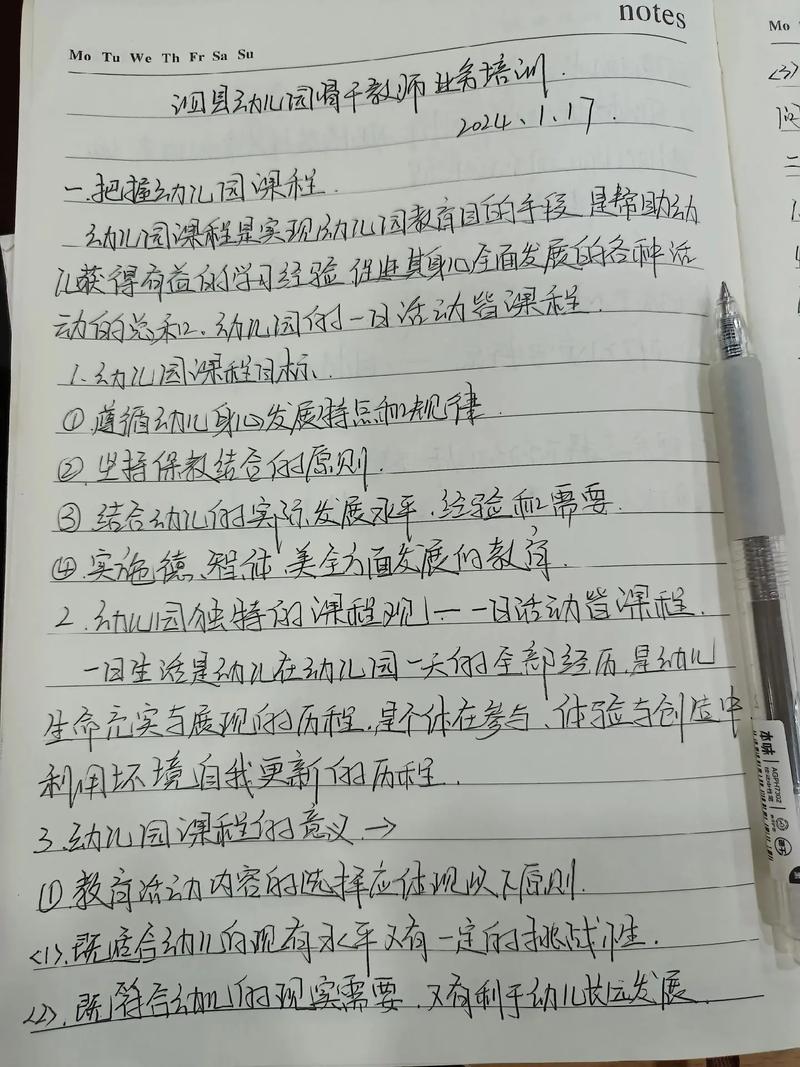 notes
Mo Tu We Th Fr Sa Su
泗县幼儿园骨干教师业务培训.
2024.1.17.
一.把握幼儿园课程.
幼儿园课程是实现幼儿园教育目的手段 是帮助幼
儿获得有益的学习经验 促进其身心全面发展的各种活
动的总和.幼儿园的一日活动皆课程.
1.幼儿园课程目标.
①遵循幼儿身心发展特点和规律.
②坚持保教结合的原则.
③结合幼儿的实际发展水平.经验和需要.
④实施德、智体 美全方面发展的教育.
2.幼儿园独特的课程观——一日活动皆课程.
一日生活是幼儿在幼儿园一天的全部经历.是幼儿
生命充实与展现的历程.是个体在参与、体验与创造中
利用环境自我更新的历程.
3.幼儿园课程的意义.→
①教育活动内容的选择应体现以下原则.
<1>.既适合幼儿的现有水平又有一定的挑战性.
<2>.既符合幼儿的现实需要.又有利于幼儿长远发展.
Mo
<3>
问
二
本味
AGPH7302